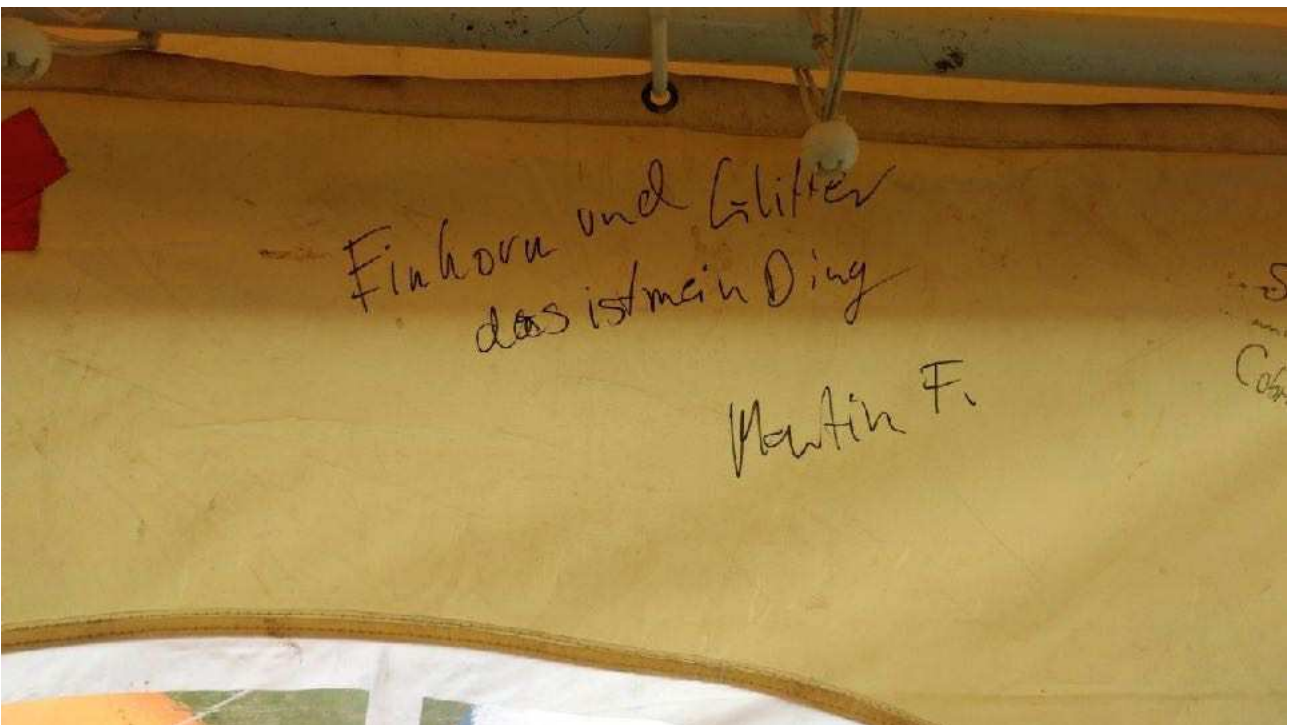 Einhorn und Glitter
das ist mein Ding
Martin F.